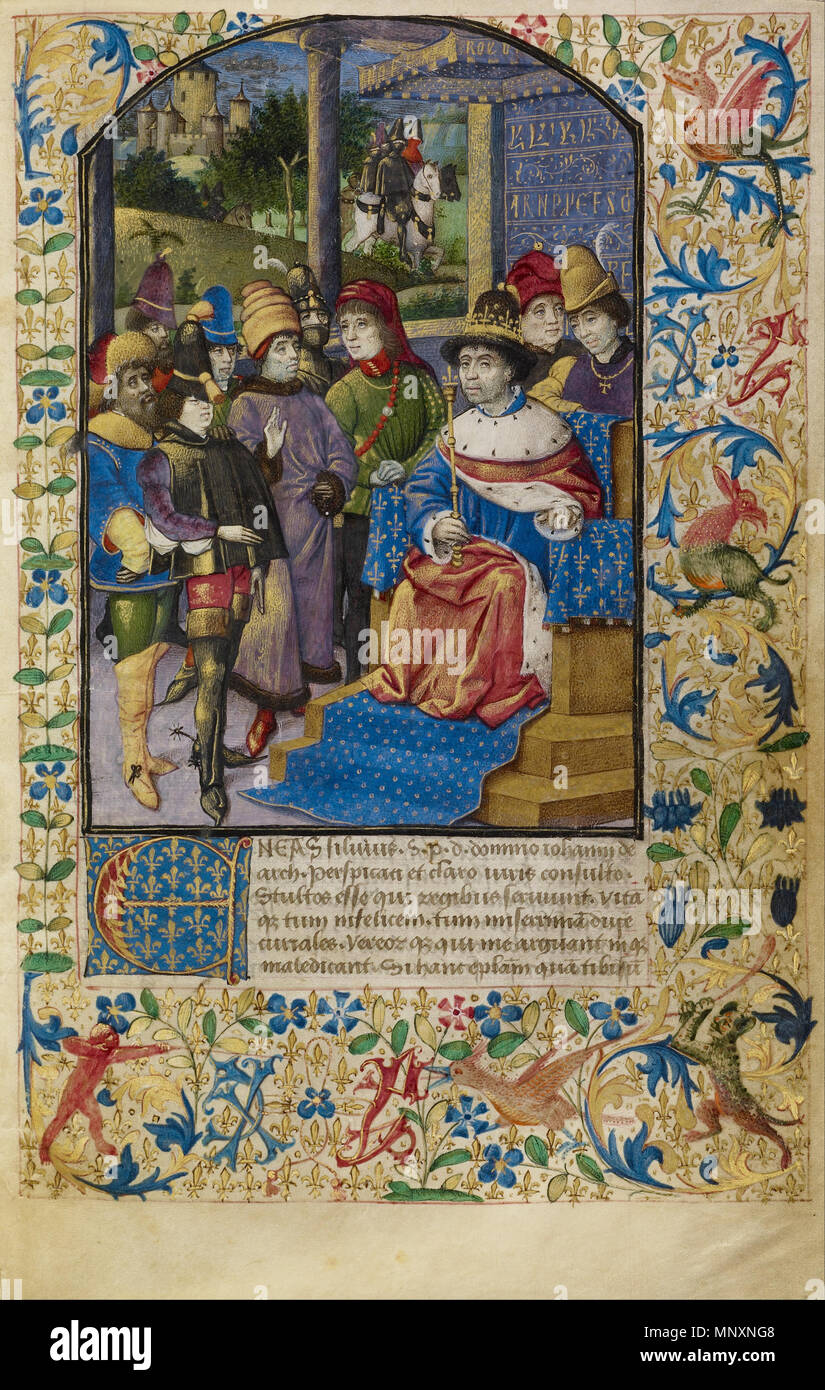 ROY D
ARNPJCFSO
PE
NEAS siluius . S . p . d . domino iohanni de
aich . perspicaci et claro iuris consulto .
Stultos esse qui regibus seruiunt . vita
qz tum infelicem . tum miserrimā duce
curiales . vereor qz qui me arguant inqz
maledicant . Si hanc eplam quā tibi su
alamy
alamy
Image ID: MNXNG8
www.alamy.com